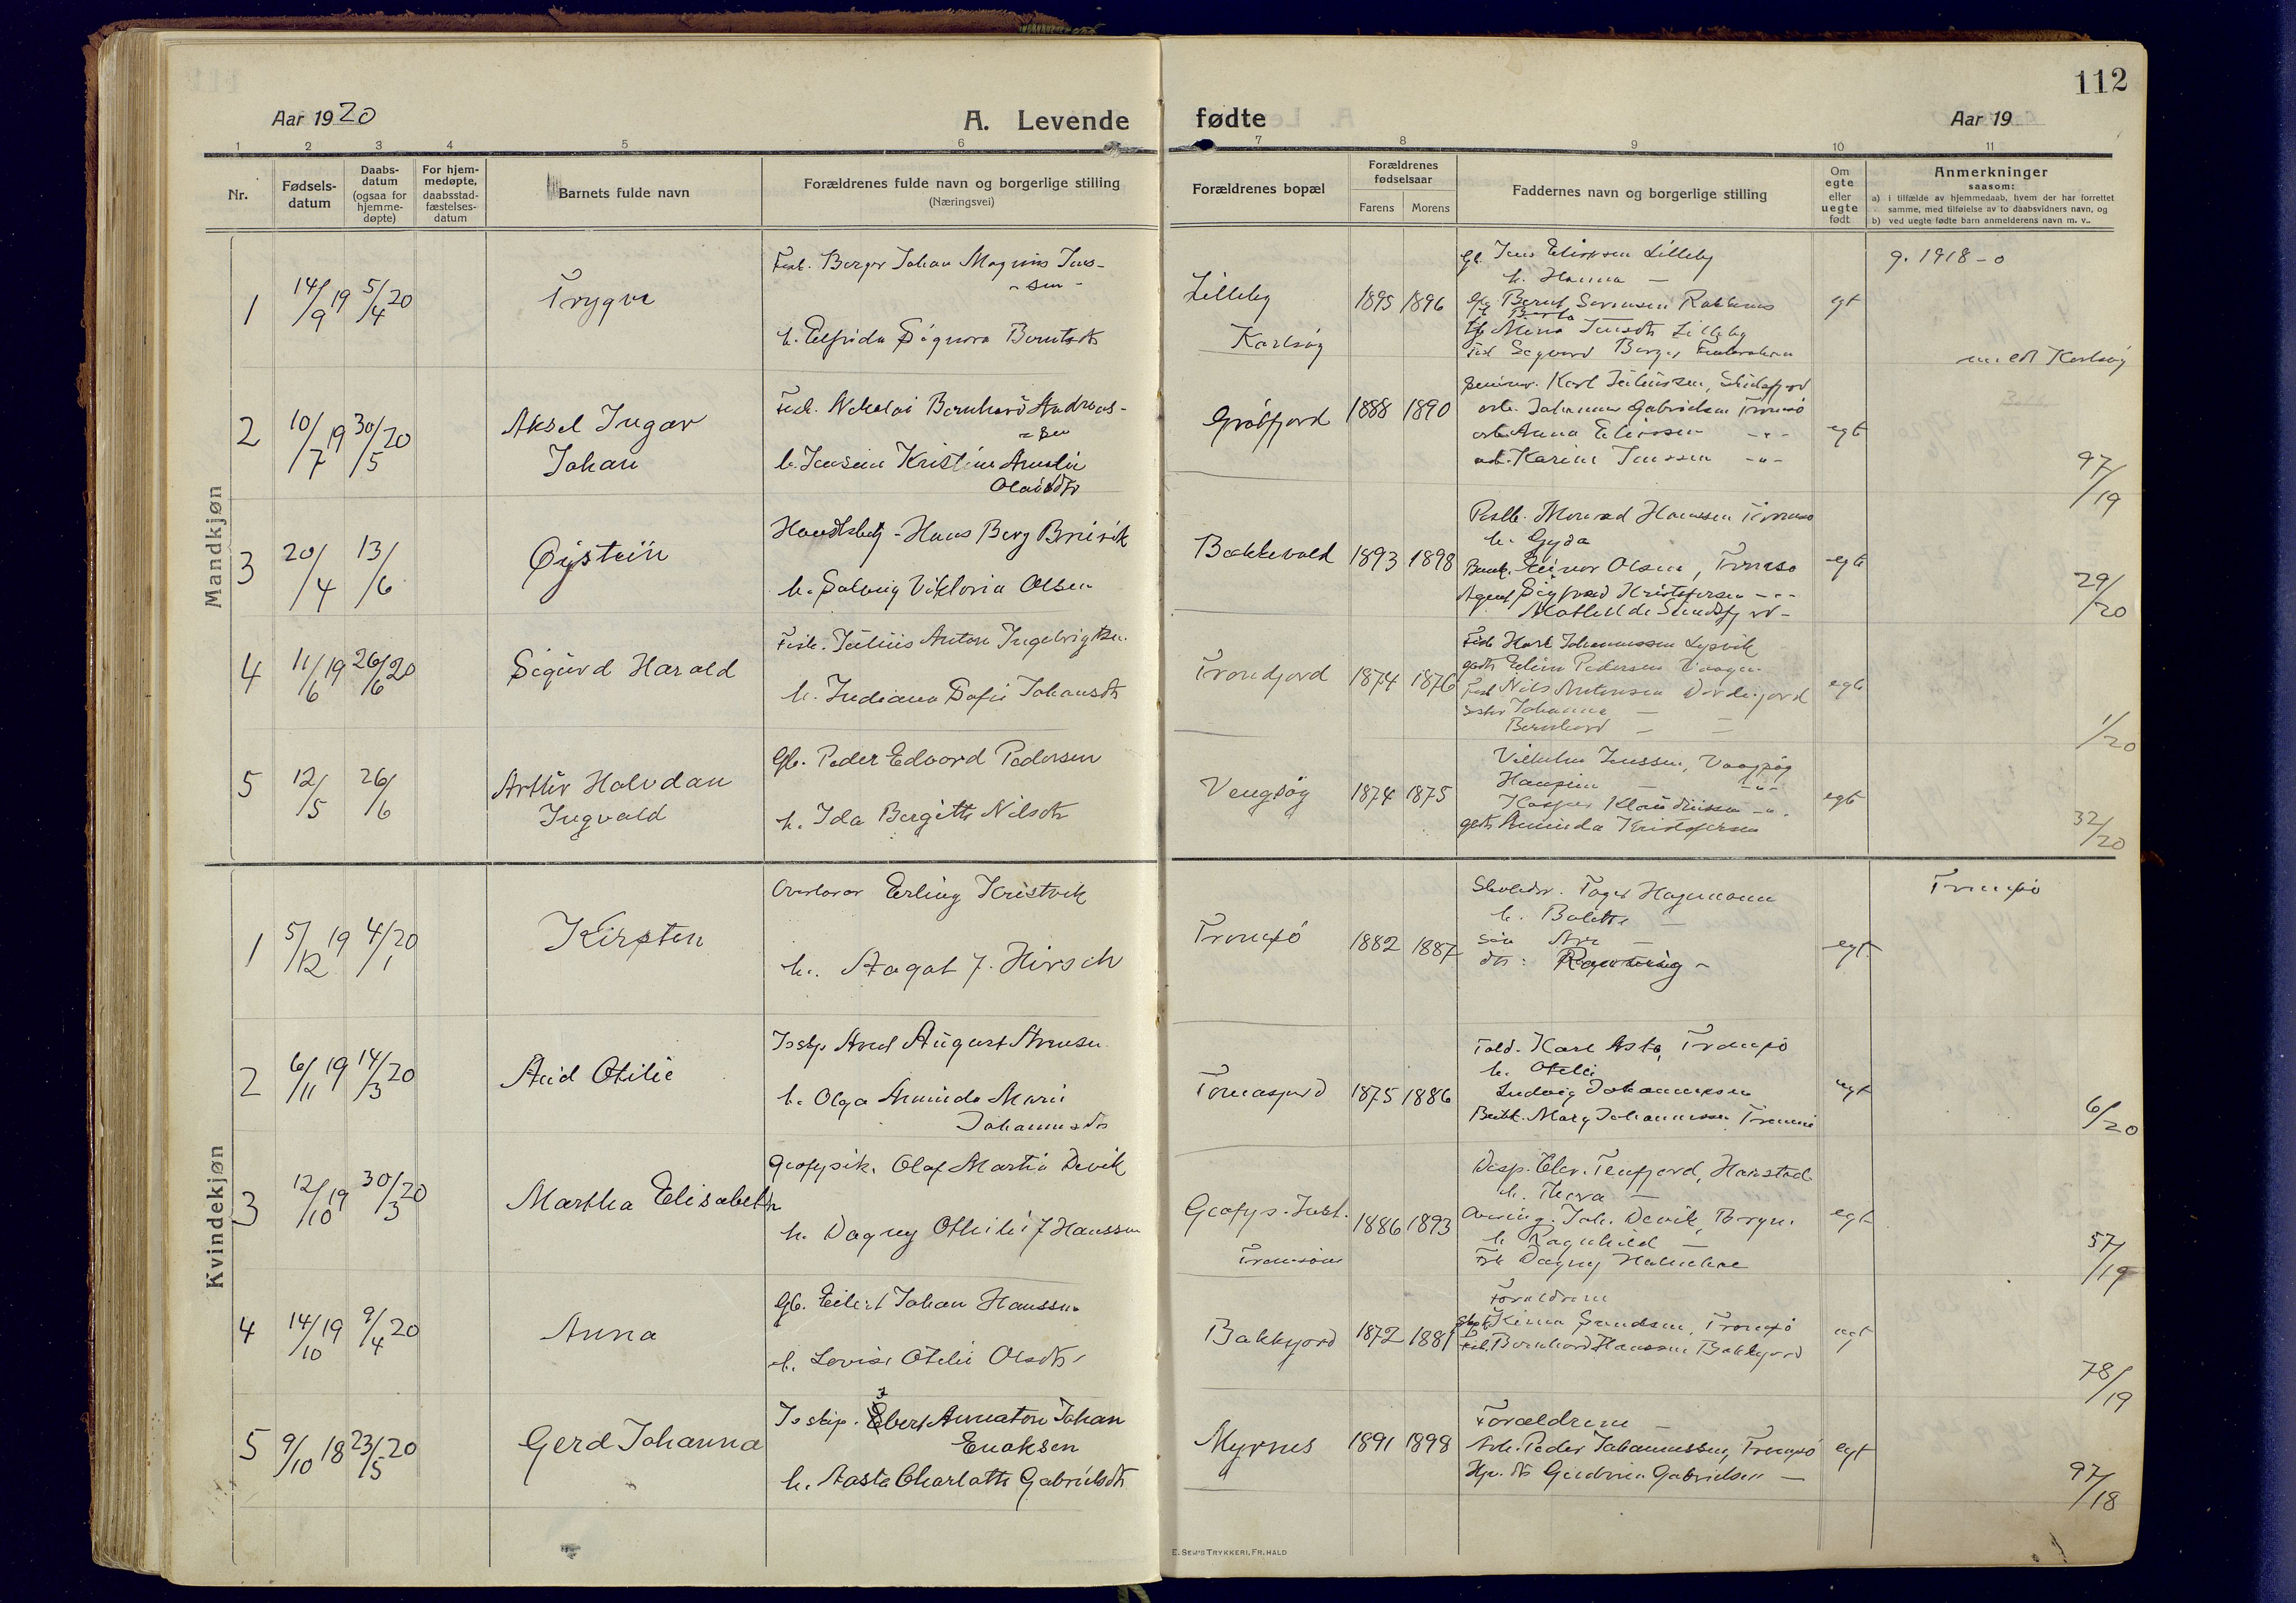 112
Aar 1920
A. Levende fødte
Aar 19
1 2 3 4 5 6 7 8 9 10 11
Nr.
Fødsels-
datum
Daabs-
datum
(ogsaa for
hjemme-
døpte)
For hjem-
medøpte,
daabsstad-
fæstelses-
datum
Barnets fulde navn
Forældrenes fulde navn og borgerlige stilling
(Næringsvei)
Forældrenes bopæl
Forældrenes
fødselsaar
Farens Morens
Faddernes navn og borgerlige stilling
Om
egte
eller
uegte
født
Anmerkninger
saasom:
a) i tilfælde av hjemmedaab, hvem der har forrettet
samme, med tilføielse av to daabsvidners navn, og
b) ved uegte fødte barn anmelderens navn m. v..
Mandkjøn
1 14/9 19 5/4 20
Trygve
Fisk. Berger Johan Magnus Jens-
sen
h. Elfrida Signora Berntsdtr
Lilleby
Karlsøy
1895 1896
Gb. Jens Elissen Lilleby
h. Hanna —
Bernt Sørensen
Lilleby
egt
g. 1918 - o
Karlsøy
2 10/7 19 30/5 20
Aksel Ingar
Johan
Fisk. Nikolai Bernhard Andreas-
sen
h. Jensine Kristine Amalie
Olausdtr
Gråtfjord
1888 1890
Karl Juliussen,
arb. Johannes Gabrielsen Tromsø
arb. Anna Elissen - " -
Karine Jenssen - " -
egt
97/19
3 20/4 13/6
Øistein
Handelsbetj. Hans Berg Breivik
h. Solveig Viktoria Olsen
Bakkevold
1893 1898
Hanssen Tromsø
h. Gyda
Einar Olsen, Tromsø
Agent Sigfred Kristofersen - " -
egt
29/20
4 11/6 19 26/6 20
Sigurd Harald
Fisk. Julius Anton Ingebrigtsen.
h. Indiana Sofie Johansdtr
1874 1876
Fisk Karl Johannessen
Pedersen
Fisk Nils Antonsen
Johanna —
Bernhard — —
egt
1/20
5 12/5 26/6
Arthur Halvdan
Ingvald
Gb. Peder Edvard Pedersen
h. Ida Bergitte Nilsdtr
Vengsøy
1874 1875
Vilhelm Jenssen,
Kasper Klaudiussen - " -
Aminda Kristofersen
egt
32/20
Kvindekjøn
1 5/12 19 4/1 20
Kirsten
Overlærer Erling Kristvik
h. Aagot f. Hirsch
Tromsø
1882 1887
Hagemann
h. Bolette —
egt.
Tromsø
2 6/11 19 14/3 20
Aud Otilie
Isskp Arnt August Arnesen
h. Olga Aminda Marie
Johannesdtr
Tomasjord
1875 1886
Karl Asto, Tromsø
h. Otilie
Ludvig Johannessen
Mary Johannessen Tromsø
egt
6/20
3 12/10 19 30/3 20
Martha Elisabeth
Geofysik. Olaf Martin Devik
h. Dagny Othilie f Hanssen
Geofys. Inst.
Tromsøen
1886 1893
Disp. Tenfjord, Harstad
h. Thora —
Joh. Devik, Bergen
h. Ragnhild —
Frk Dagny
egt
57/19
4 14/10 19 9/4 20
Anna
Gb. Eilert Johan Hanssen
h. Lovise Otilie Olsdtr
Bakkejord
1872 1881
Forældrene
Tromsø
Fisk. Bernhard Hanssen Bakkejord
egt
78/19
5 9/10 18 23/5 20
Gerd Johanna
Isskip. Ebert Annaton Johan
Enoksen
h. Aasta Charlotte Gabrielsdtr
Myrnes
1891 1898
Forældrene —
Arb. Peder Johannessen, Tromsø
Gudrun Gabrielsen —
egt
97/18
E. SEM'S TRYKKERI, FR.HALD